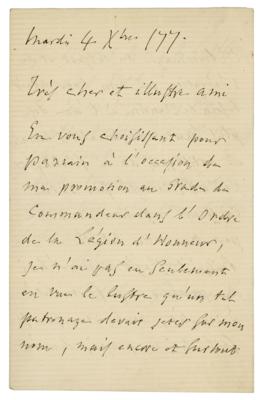 Mardi 4 Xbre /77.
Très cher et illustre ami
En vous choisissant pour
parrain à l'occasion de
ma promotion au Grade de
Commandeur dans l'Ordre
de la Légion d'Honneur,
je n'ai pas eu seulement
en vue le lustre qu'un tel
patronage devait jeter sur mon
nom, mais encore et surtout